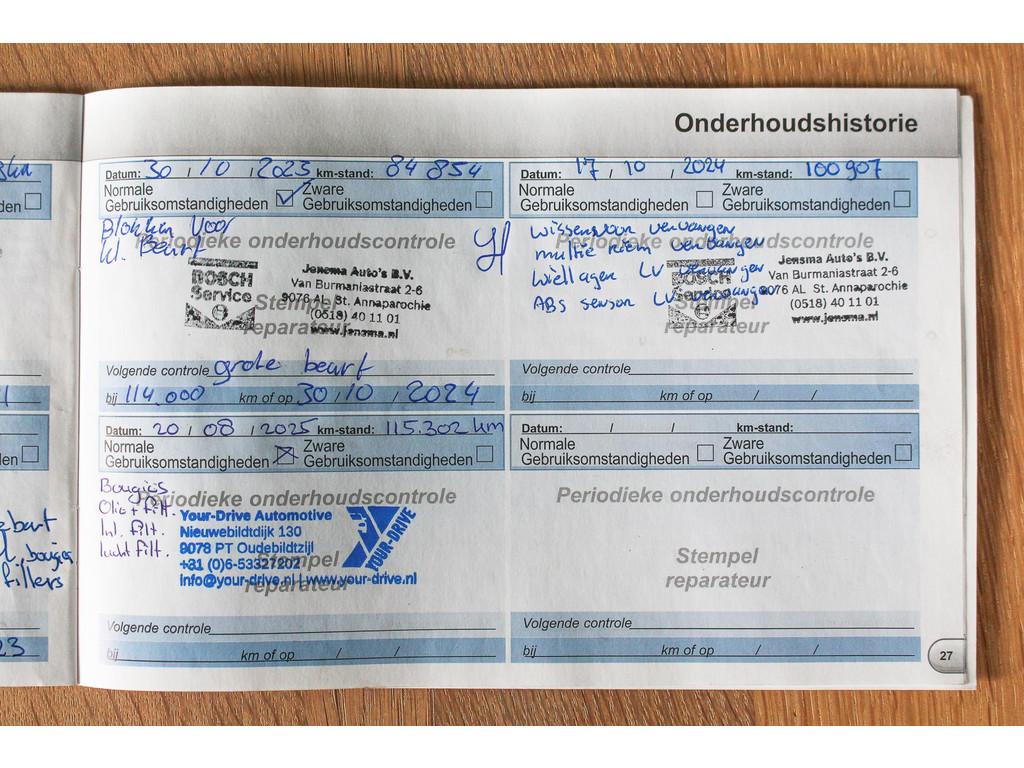 Onderhoudshistorie
Datum: 30 / 10 / 2023 km-stand: 84 854
Normale
Gebruiksomstandigheden
Zware
Gebruiksomstandigheden
Blokken Voor
kl. Beurt
Periodieke onderhoudscontrole
BOSCH
Service
Jensma Auto's B.V.
Van Burmaniastraat 2-6
9076 AL St. Annaparochie
(0518) 40 11 01
www.jensma.nl
Stempel
reparateur
Volgende controle grote beurt
bij 114.000 km of op 30 / 10 / 2024
Datum: 17 / 10 / 2024 km-stand: 100 907
Normale
Gebruiksomstandigheden
Zware
Gebruiksomstandigheden
wissers voor vervangen
multie riem vervangen
wiellagen LV vervangen
ABS sensor LV vervangen
Periodieke onderhoudscontrole
BOSCH
Service
Jensma Auto's B.V.
Van Burmaniastraat 2-6
9076 AL St. Annaparochie
(0518) 40 11 01
www.jensma.nl
Stempel
reparateur
Volgende controle
bij km of op / /
Datum: 20 / 08 / 2025 km-stand: 115.302 km
Normale
Gebruiksomstandigheden
Zware
Gebruiksomstandigheden
Bougies
Olie + filt.
Int. filt.
lucht filt.
Periodieke onderhoudscontrole
Your-Drive Automotive
Nieuwebildtdijk 130
9078 PT Oudebildtzijl
+31 (0)6-53327202
info@your-drive.nl | www.your-drive.nl
YOUR-DRIVE
Stempel
reparateur
Volgende controle
bij km of op / /
Datum: / / km-stand:
Normale
Gebruiksomstandigheden
Zware
Gebruiksomstandigheden
Periodieke onderhoudscontrole
Stempel
reparateur
Volgende controle
bij km of op / /
27
den
den
bougies
fillers
23